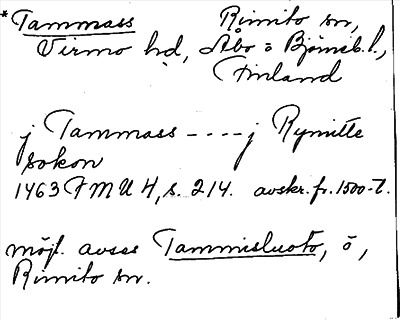 * Tammass Rimito sn,
Virmo hd, Åbo o Björneb. l.,
Finland
j Tammass ---- j Rymitte
sokon
1463 FMU 4, s. 214. avskr. fr. 1500-t.
möjl. avses Tammisluoto, ö,
Rimito sn.